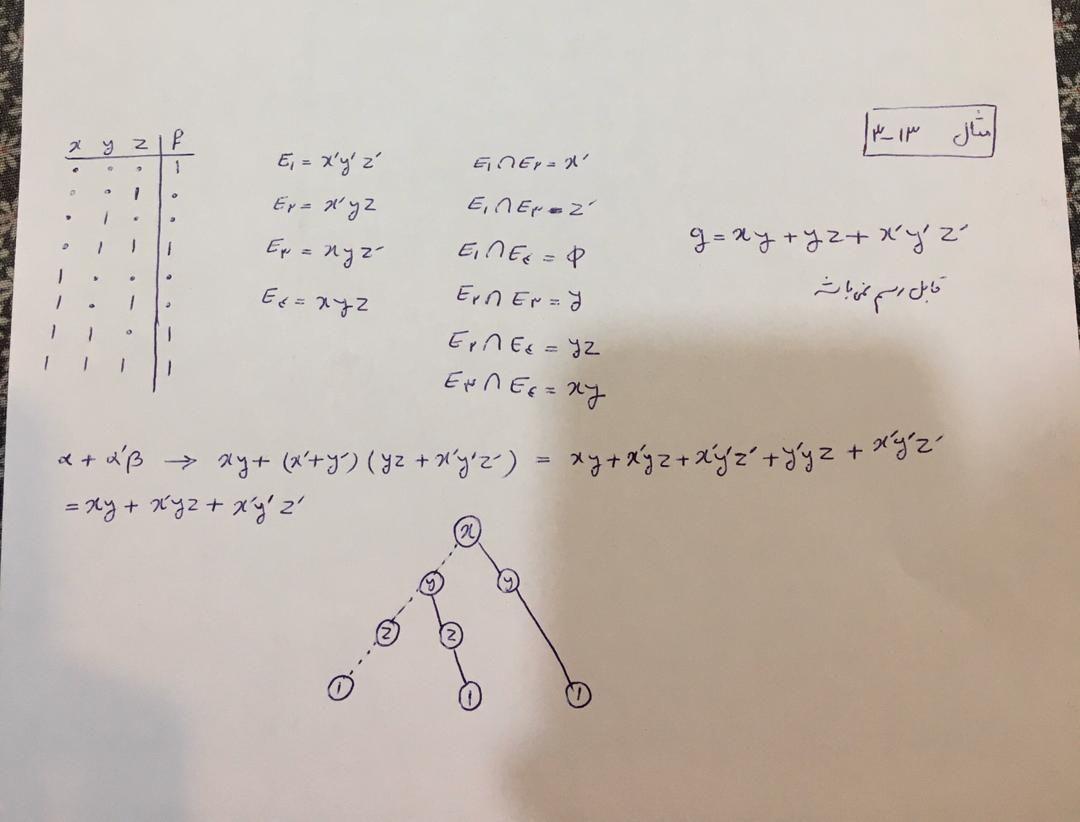 مثال ۱۳-۳
x y z | f
۰ ۰ ۰ | ۱
۰ ۰ ۱ | ۰
۰ ۱ ۰ | ۰
۰ ۱ ۱ | ۱
۱ ۰ ۰ | ۰
۱ ۰ ۱ | ۰
۱ ۱ ۰ | ۱
۱ ۱ ۱ | ۱
E۱ = x'y'z'
E۲ = x'yz
E۳ = xyz'
E۴ = xyz
E۱∩E۲ = x'
E۱∩E۳ = z'
E۱∩E۴ = φ
E۲∩E۳ = y
E۲∩E۴ = yz
E۳∩E۴ = xy
g = xy + yz + x'y'z'
قابل رسم نمی‌باشد
α + α'β → xy + (x'+y')(yz + x'y'z') = xy + x'yz + x'y'z' + y'yz + x'y'z'
= xy + x'yz + x'y'z'
x
y y
z z
۱ ۱ ۱